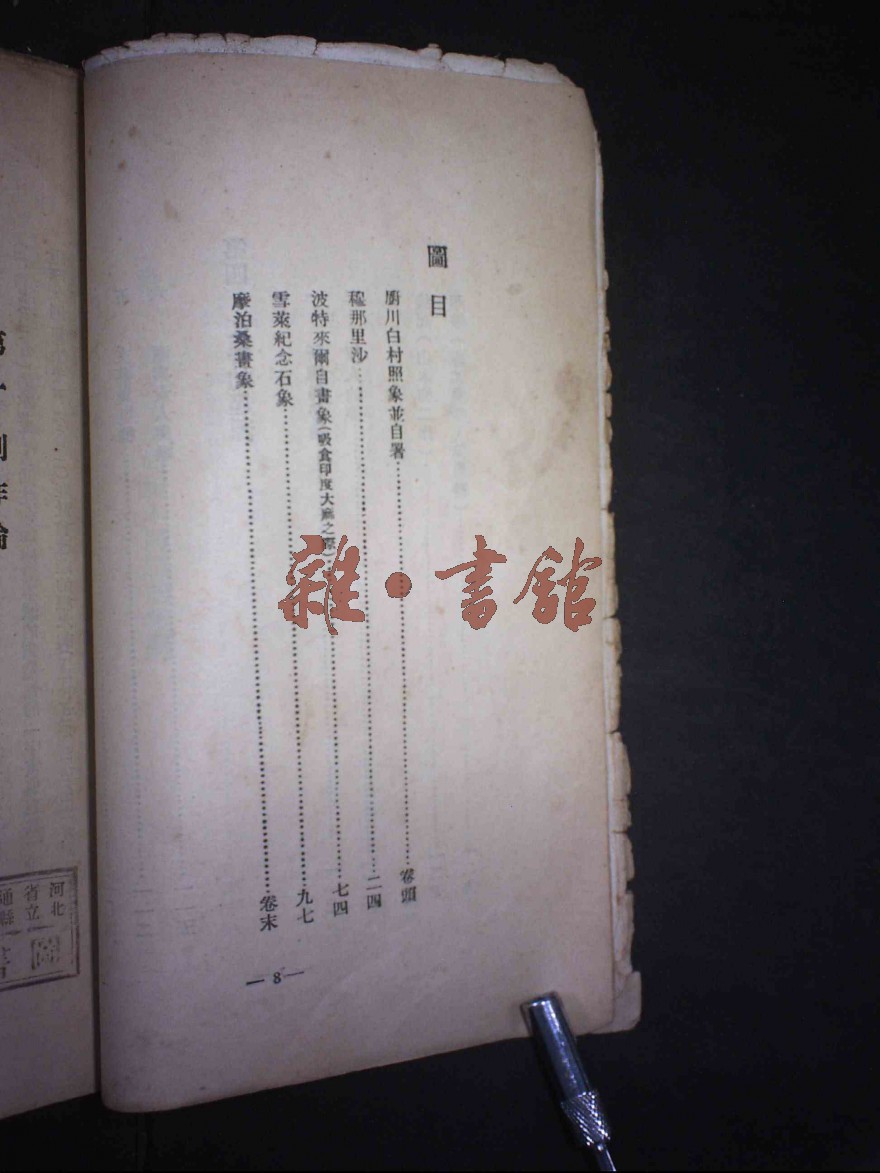 圖目
廚川白村照象並自署……卷頭
穠那里沙……二四
波特來爾自畫象(吸食印度大麻之際)……七四
雪萊紀念石象……九七
摩泊桑畫象……卷末
— 8 —
雜·書館
河北
省立
通縣
圖
書
第一 創作論